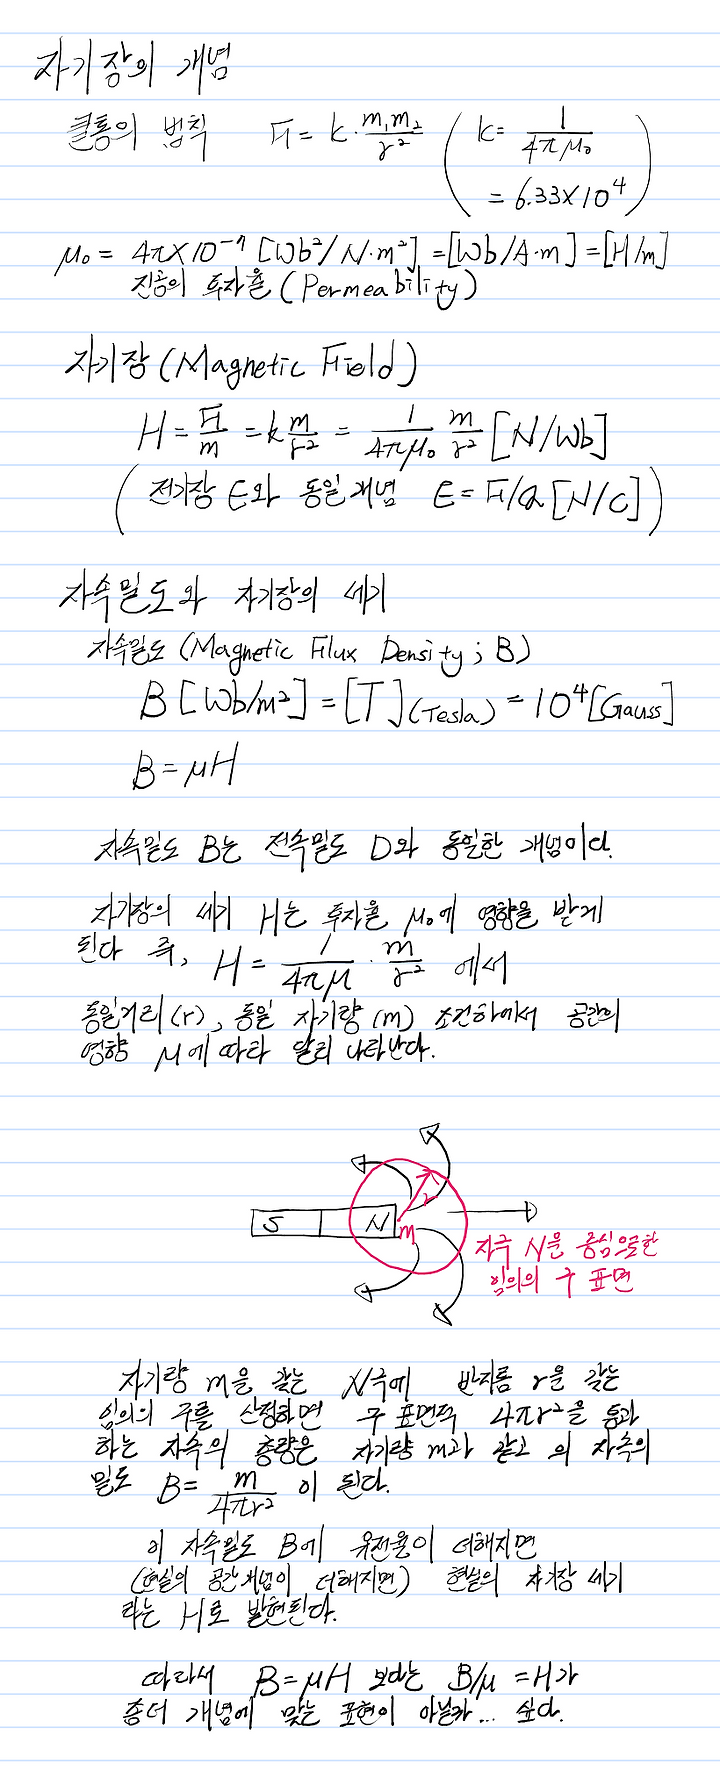 자기장의 개념
쿨롱의 법칙 F = k·m₁m₂/r² ( k = 1/4πμ₀
= 6.33×10⁴ )
μ₀ = 4π×10⁻⁷ [Wb²/N·m²] = [Wb/A·m] = [H/m]
진공의 투자율 (Permeability)
자기장 (Magnetic Field)
H = F/m = k m/r² = 1/4πμ₀ m/r² [N/Wb]
( 전기장 E와 동일개념 E = F/Q [N/C] )
자속밀도와 자기장의 세기
자속밀도 (Magnetic Flux Density ; B)
B [Wb/m²] = [T] (Tesla) = 10⁴ [Gauss]
B = μH
자속밀도 B는 전속밀도 D와 동일한 개념이다.
자기장의 세기 H는 투자율 μ₀에 영향을 받게
된다 즉, H = 1/4πμ · m/r² 에서
동일거리(r), 동일 자기량(m) 조건하에서 공간의
영향 μ에 따라 달리 나타난다.
r
S N m
자극 N을 중심으로한
임의의 구 표면
자기량 m을 갖는 N극에 반지름 r을 갖는
임의의 구를 산정하면 구 표면적 4πr²을 통과
하는 자속의 총량은 자기량 m과 같고 의 자속의
밀도 B = m/4πr² 이 된다.
이 자속밀도 B에 유전율이 더해지면
(현실의 공간개념이 더해지면) 현실의 자기장 세기
라는 H로 발현된다.
따라서 B = μH 보다는 B/μ = H가
좀더 개념에 맞는 표현이 아닐까... 싶다.